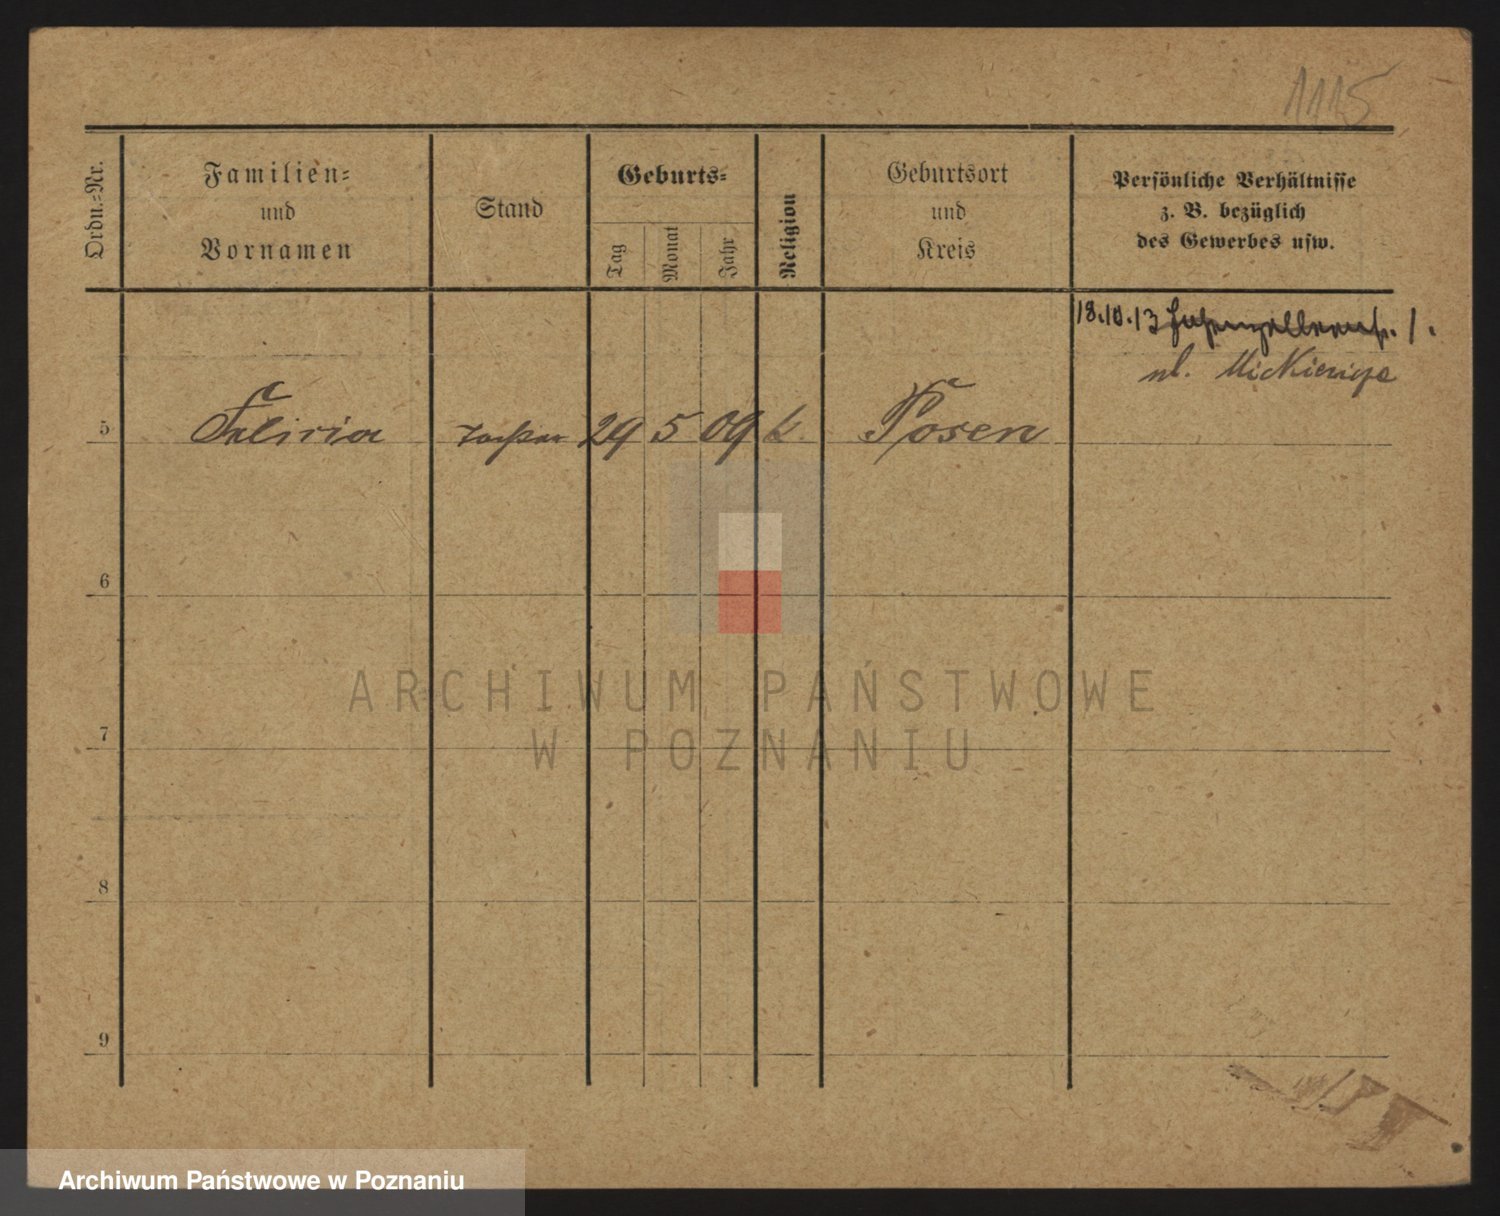 1115
Ordn.-Nr.
Familien-
und
Vornamen
Stand
Geburts-
Tag
Monat
Jahr
Religion
Geburtsort
und
Kreis
Persönliche Verhältnisse
z. B. bezüglich
des Gewerbes usw.
18.10.13 Hohenzollernstr. 1.
ul. Mickiewicza
5 Felicia Tochter 29 5 09 k. Posen
6
7
8
9
ARCHIWUM PAŃSTWOWE
W POZNANIU
Archiwum Państwowe w Poznaniu